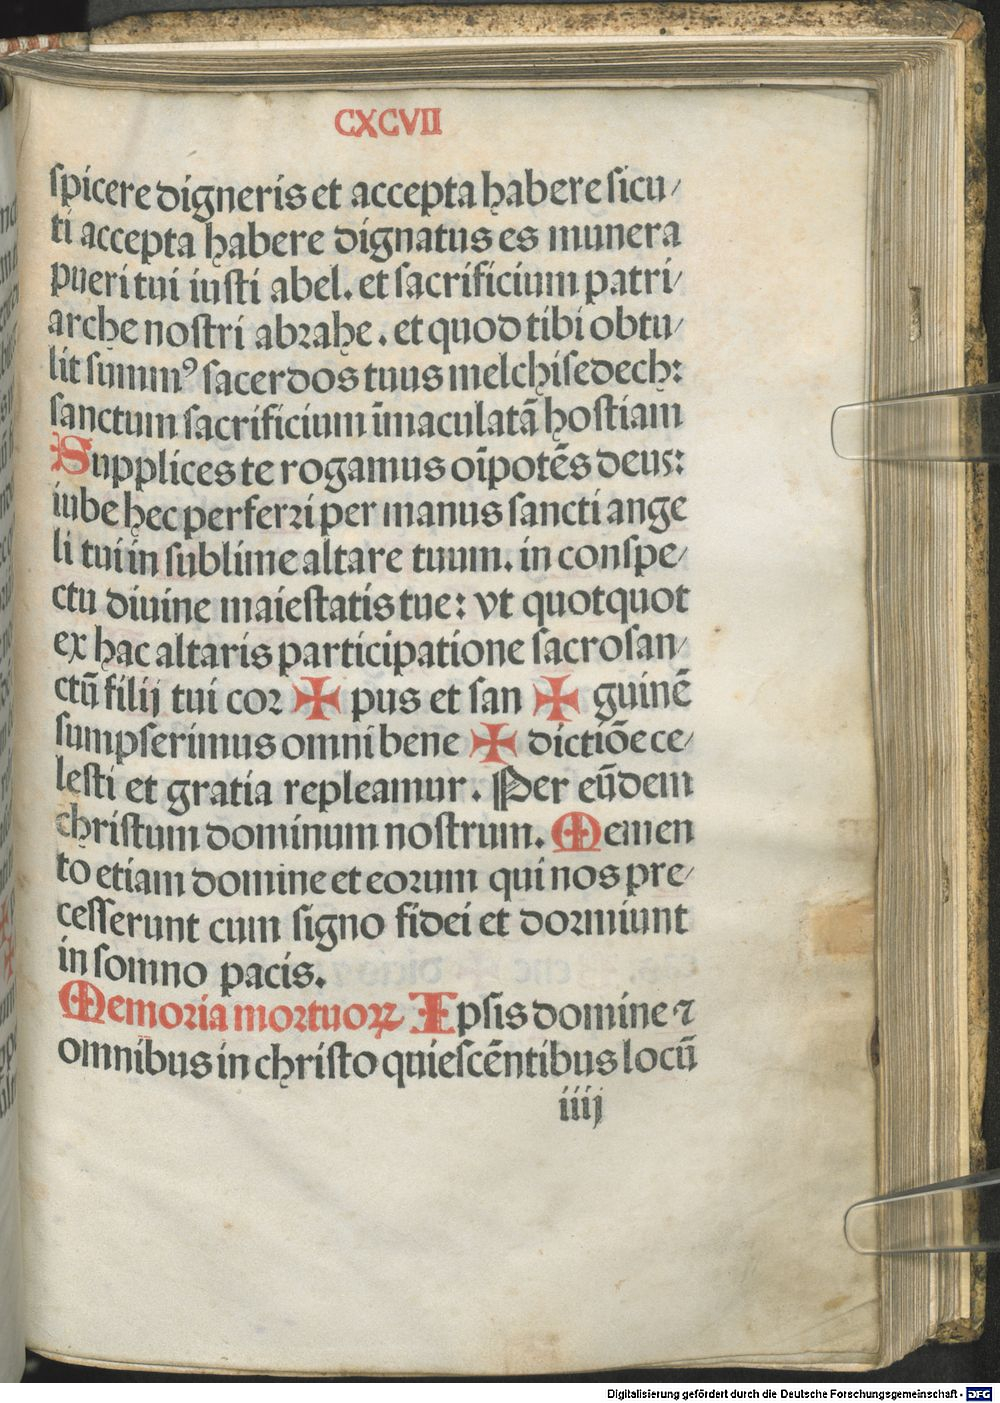 CXCVII
spicere digneris et accepta habere sicu/
ti accepta habere dignatus es munera
pueri tui iusti abel. et sacrificium patri/
arche nostri abrahe. et quod tibi obtu/
lit summꝰ sacerdos tuus melchisedech:
sanctum sacrificium īmaculatā hostiam
Supplices te rogamus oīpotēs deus:
iube hec perferri per manus sancti ange
li tui in sublime altare tuum. in conspe/
ctu diuine maiestatis tue: vt quotquot
ex hac altaris participatione sacrosan/
ctū filij tui cor ✠ pus et san ✠ guinē
sumpserimus omni bene ✠ dictiōe ce/
lesti et gratia repleamur. Per eūdem
christum dominum nostrum. Memen
to etiam domine et eorum qui nos pre/
cesserunt cum signo fidei et dormiunt
in somno pacis.
Memoria mortuoꝝ Ipsis domine ⁊
omnibus in christo quiescētibus locū
iiij
Digitalisierung gefördert durch die Deutsche Forschungsgemeinschaft - DFG